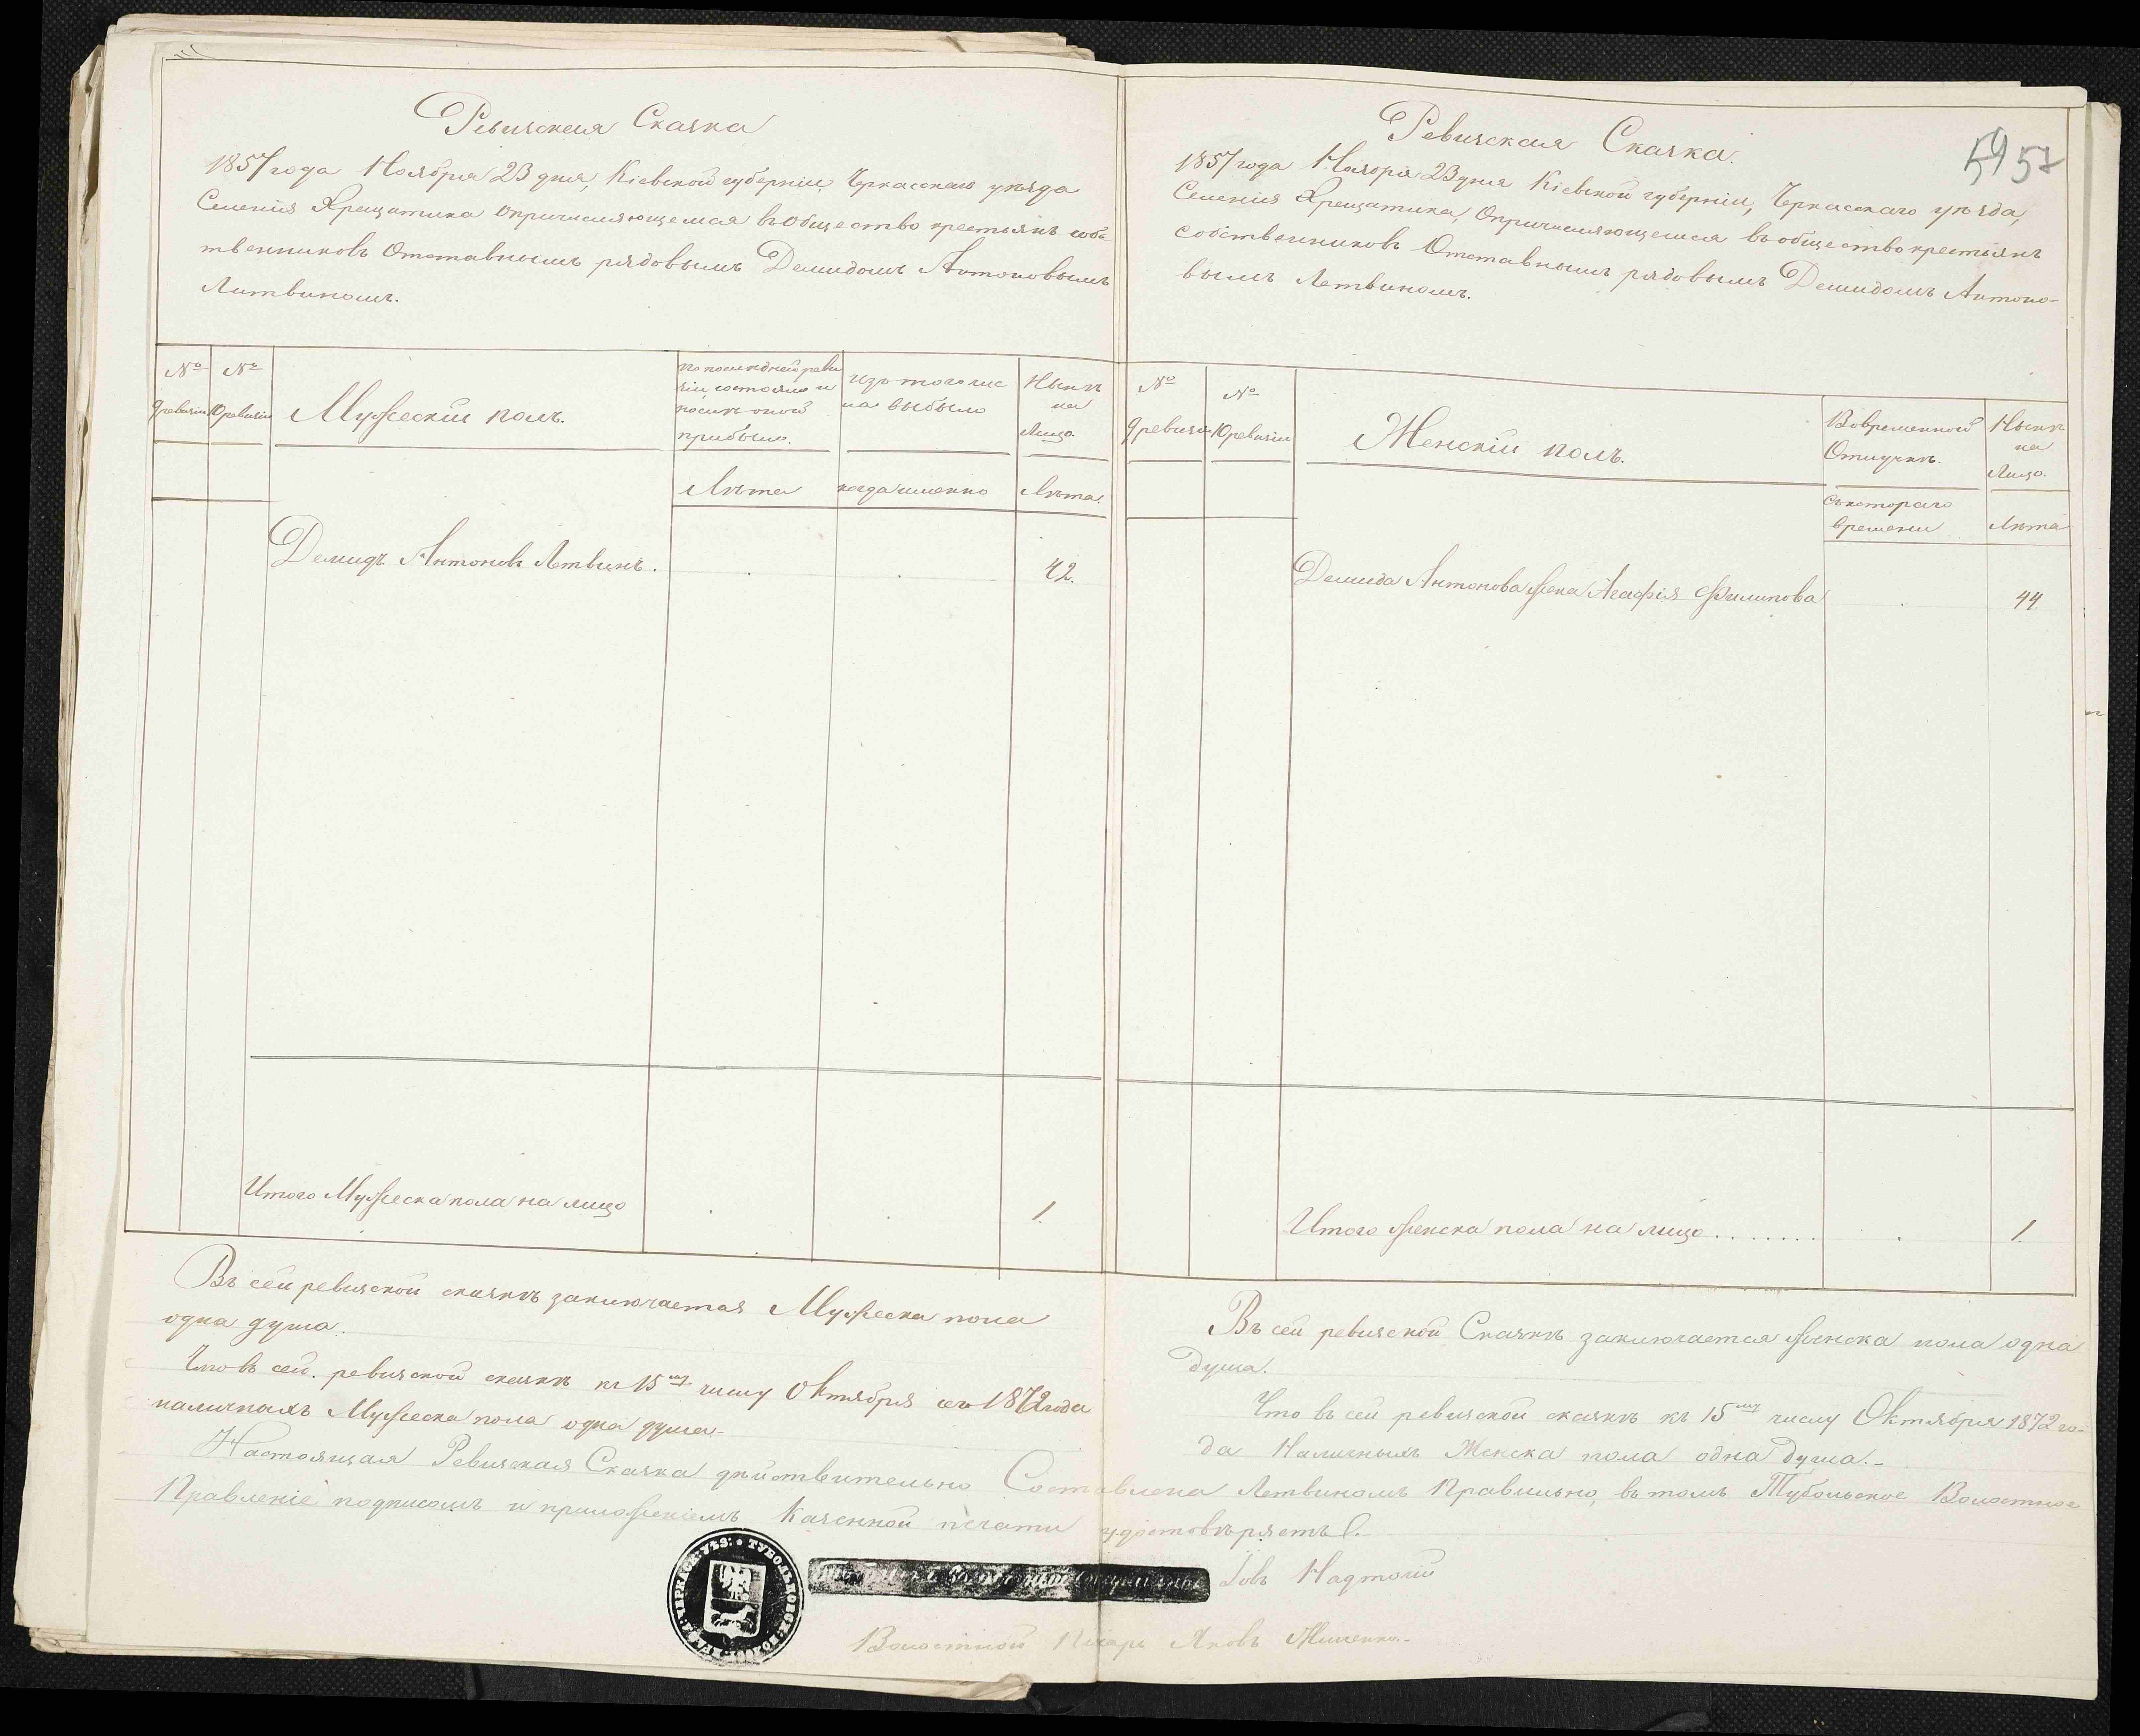 Ревизская Сказка
1857 года Ноября 23 дня, Кіевской губерніи Черкасскаго уѣзда
Селенія Хрещатика опричисляющемся въ общество крестьянъ собс
твенниковъ Отставнымъ рядовымъ Демидомъ Антоновымъ
Литвиномъ.
№ 9 ревизіи
№ 10 ревизіи
Мужескій полъ.
по последней реви
зіи состояло и
послѣ оной
прибыло.
изъ того чис
ла выбыло
Нынѣ
на
Лицо.
Лѣта
когда именно
Лѣта.
Демидъ Антоновъ Летвинъ.
42.
Итого Мужеска пола на лицо
1.
Въ сей ревизской сказкѣ заключается Мужеска пола
одна душа.
Что въ сей ревизской сказкѣ къ 15му числу Октября сего 1872 года
наличныхъ Мужеска пола одна душа.
59 57
Ревизская Сказка.
1857 года Ноября 23 дня Кіевской губерніи, Черкасскаго уѣзда,
Селенія Хрещатика, Опричисляющемся въ общество крестьянъ
собственниковъ Отставнымъ рядовымъ Демидомъ Антоно-
вымъ Летвиномъ.
№
9 ревизіи
№
10 ревизіи
Женскій полъ.
Во временной
Отлучкѣ.
Нынѣ
на
Лицо.
съ котораго
времени
Лѣта
Демида Антонова жена Агафія Филипова
44
Итого женска пола на лицо ........
1.
Въ сей ревизской Сказкѣ заключается женска пола одна
душа.
Что въ сей ревизской сказкѣ къ 15му числу Октября 1872 го-
да Наличныхъ Женска пола одна душа.-
Настоящая Ревизская Сказка дѣйствительно Составлена Летвиномъ Правильно, въ томъ Тубольское Волостное
Правленіе подписомъ и приложеніемъ Казенной печати удостовѣряетъ.-
Іовъ Надточій
Волостной Писарь Яковъ